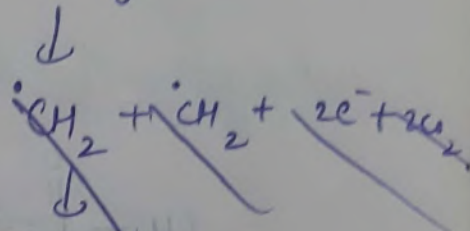 ↓
•CH₂ + •CH₂ + 2e⁻ + 2Cl₂
↓